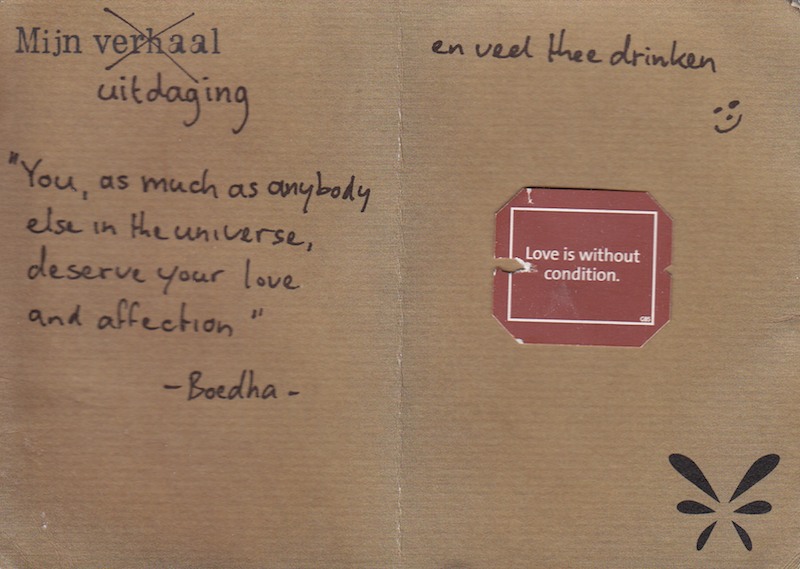 Mijn verhaal
uitdaging
"You, as much as anybody
else in the universe,
deserve your love
and affection"
- Boedha -
en veel thee drinken
Love is without
condition.
GBS